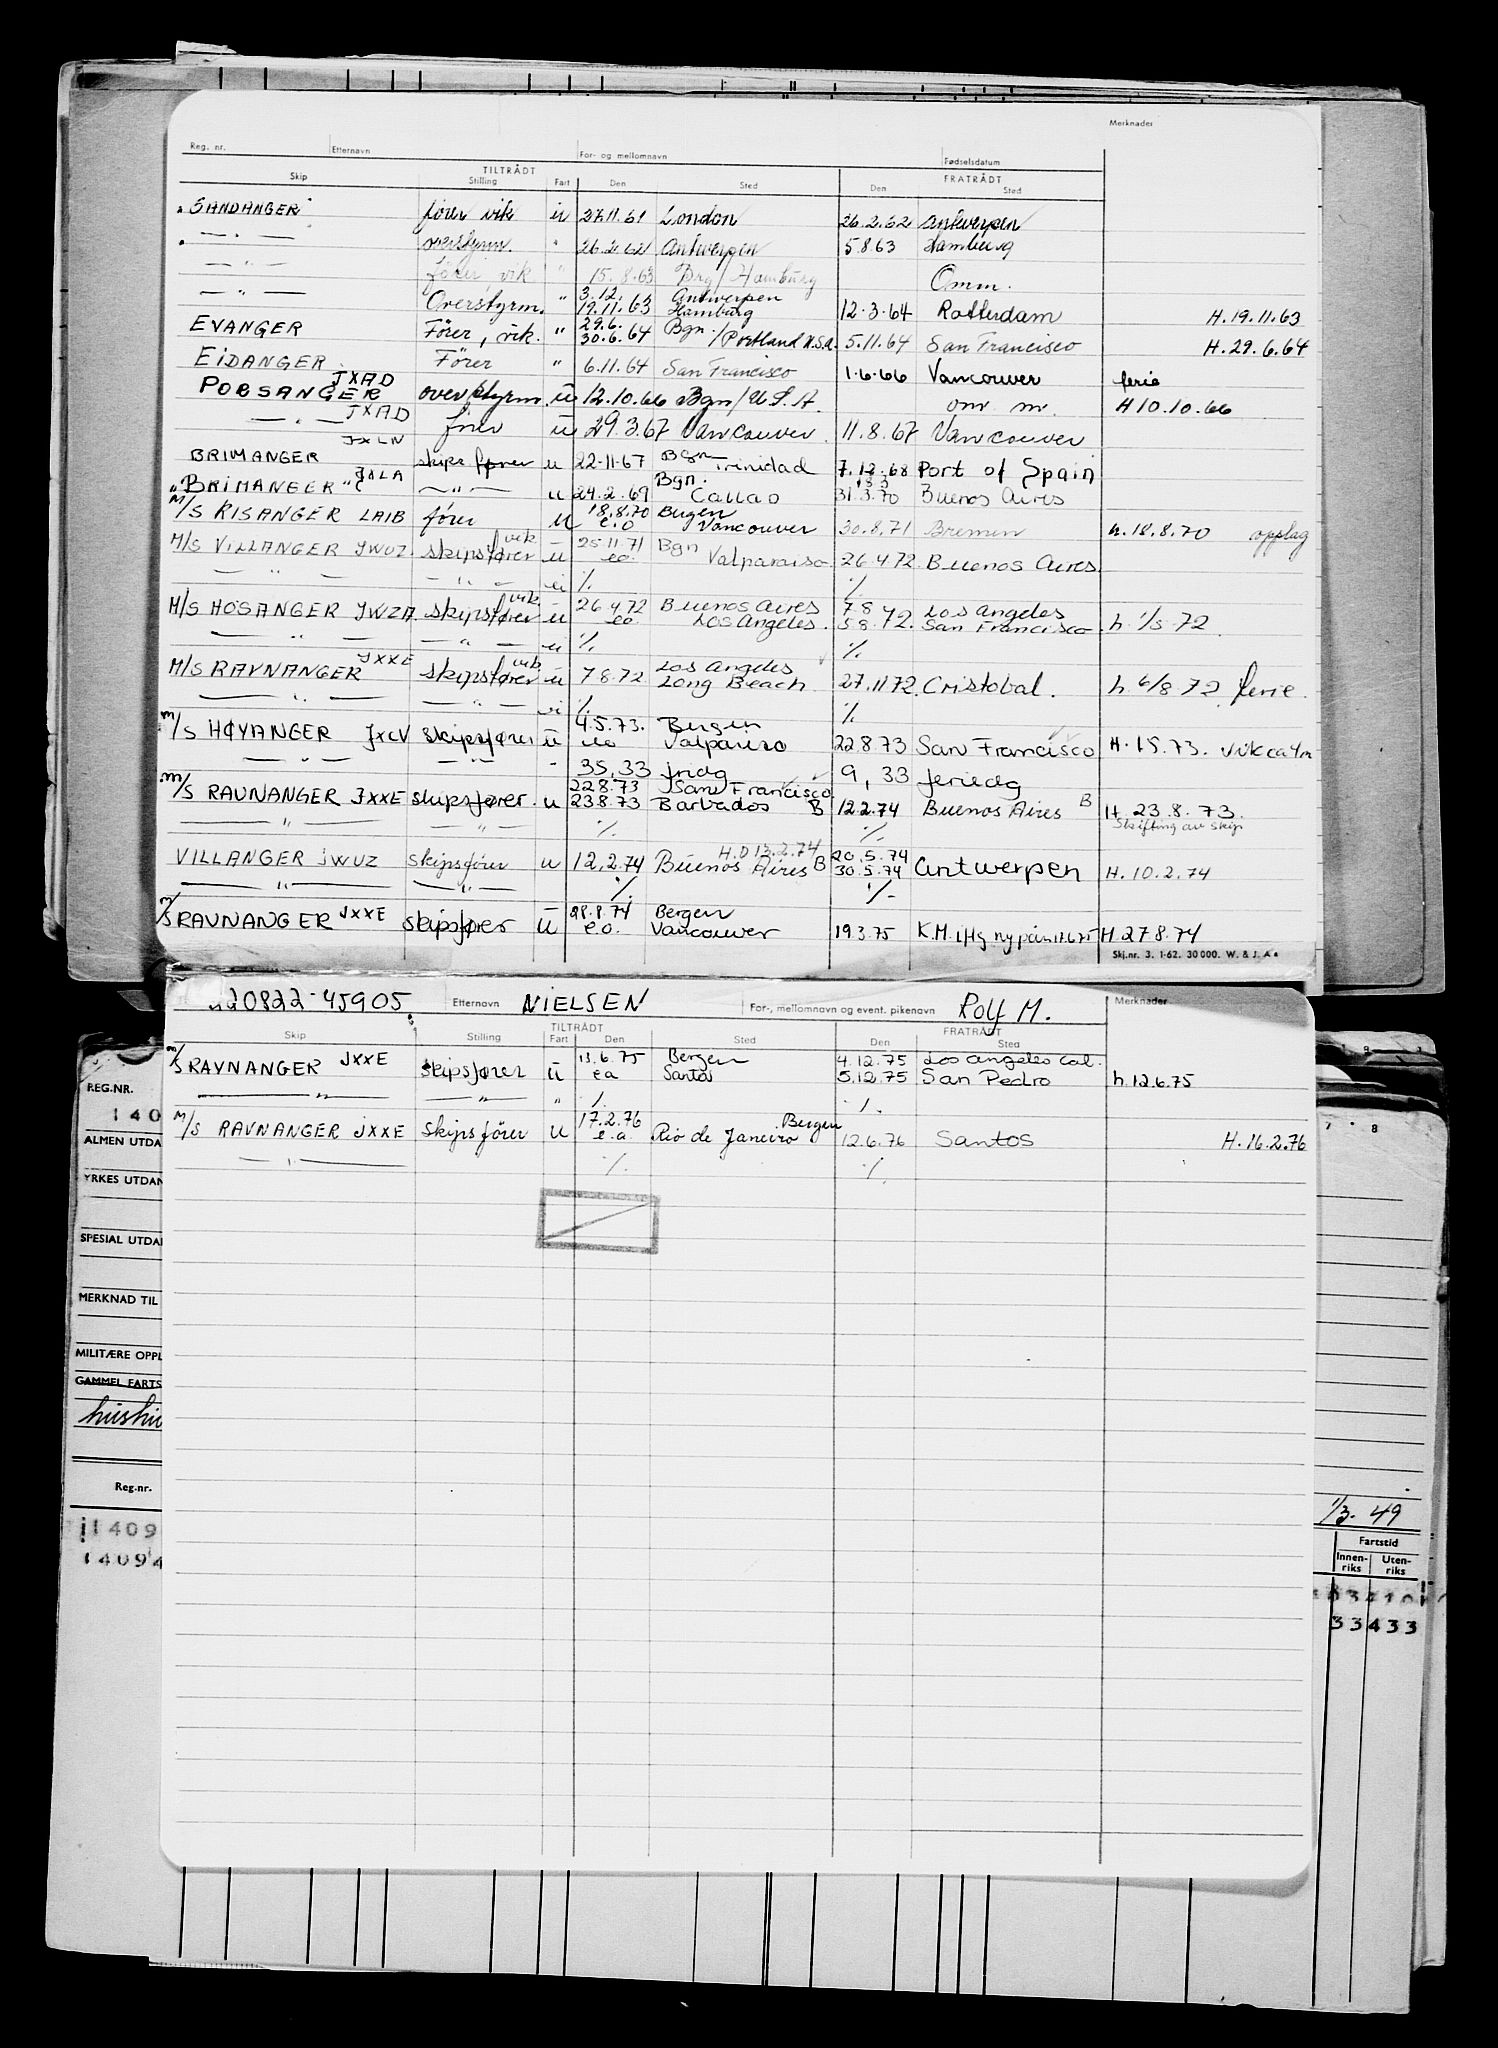 Merknader
Reg. nr. Etternavn For- og mellomnavn Fødselsdatum
TILTRÅDT FRATRÅDT
Skip Stilling Fart Den Sted Den Sted
"SANDANGER" fører vik u 27.11.61 London 26.2.62 Antwerpen
— " — overstyrm. " 26.2.62 Antwerpen 5.8.63 Hamburg
— " — fører vik " 15.8.63 Brg/Hamburg Omm.
— " — Overstyrm. " 3.12. 19.11.63 Antwerpen Hamburg 12.3.64 Rotterdam H.19.11.63
EVANGER Fører, vik. " 29.6. 30.6.64 Bgn./Portland U.S.A. 5.11.64 San Francisco H.29.6.64
EIDANGER Fører " 6.11.64 San Francisco 1.6.66 Vancouver ferie
PORSANGER JXAD overstyrm. u 12.10.66 Bgn/U.S.A. om m. H10.10.66
— " — JXAD fører u 29.3.67 Vancouver 11.8.67 Vancouver
BRIMANGER JXLN skipsfører u 22.11.67 Bgn Trinidad 7.12.68 Port of Spain
"BRIMANGER" JXLA — " — u 24.2.69 Bgn. Callao 18.3 31.3.70 Buenos Aires
M/S RISANGER LAIB fører u 18.8.70 e.o Bergen Vancouver 30.8.71 Bremen h.18.8.70 opplag
M/S VILLANGER JWUZ skipsfører vik u 25.11.71 eo. Bgn Valparaiso 26.4.72 Buenos Aires
— " — — " — u % %
M/S HOSANGER JWZA skipsfører vik u 26.4.72 eo. Buenos Aires Los Angeles. 7.8 5.8.72. Los Angeles San Francisco h. 1/5 72
— " — — " — u % %
M/S RAVNANGER JXXE skipsfører vik u 7.8.72 Los Angeles Long Beach 27.11.72 Cristobal. h. 6/8 72 ferie
— " — — " — u % %
M/S HØYANGER JXCV skipsfører u 4.5.73. eo Bergen Valpariso 22.8.73 San Francisco H. 1.5.73. vik ca 4m
— " — — " — " 35,33 fridg 9,33 feriedg
M/S RAVNANGER JXXE skipsfører u 22.8.73 23.8.73 San Francisco Barbados B 12.2.74 Buenos Aires B H. 23.8.73. Skifting av skip
— " — — " — % %
VILLANGER JWUZ skipsfører u 12.2.74 H.D 13.2.74 Buenos Aires B 20.5.74 30.5.74 Antwerpen H. 10.2.74
— " — — " — % %
M/S RAVNANGER JXXE skipsfører u 28.8.74 e.o. Bergen Vancouver 19.3.75 K.M. H 27.8.74
Skj.nr. 3. 1-62. 30 000. W. & J. A
220822-45905. Etternavn NIELSEN For-, mellomnavn og event. pikenavn Rolf M. Merknader
TILTRÅDT FRATRÅDT
Skip Stilling Fart Den Sted Den Sted
M/S RAVNANGER JXXE skipsfører u 13.6.75 ea Bergen Santos 4.12.75 5.12.75 Los Angeles Cal. San Pedro h.12.6.75
— " — — " — " % %
M/S RAVNANGER JXXE Skipsfører u 17.2.76 e.a. Bergen Rio de Janeiro 12.6.76 Santos H. 16.2.76
— " — % %
REG.NR.
140
ALMEN UTDA
YRKES UTDAN
SPESIAL UTDA
MERKNAD TIL
MILITÆRE OPPL
GAMMEL FARTS
Reg.-nr.
1409
14094
7 8
1/3. 49
Fartstid
Innen-riks Uten-riks
33433